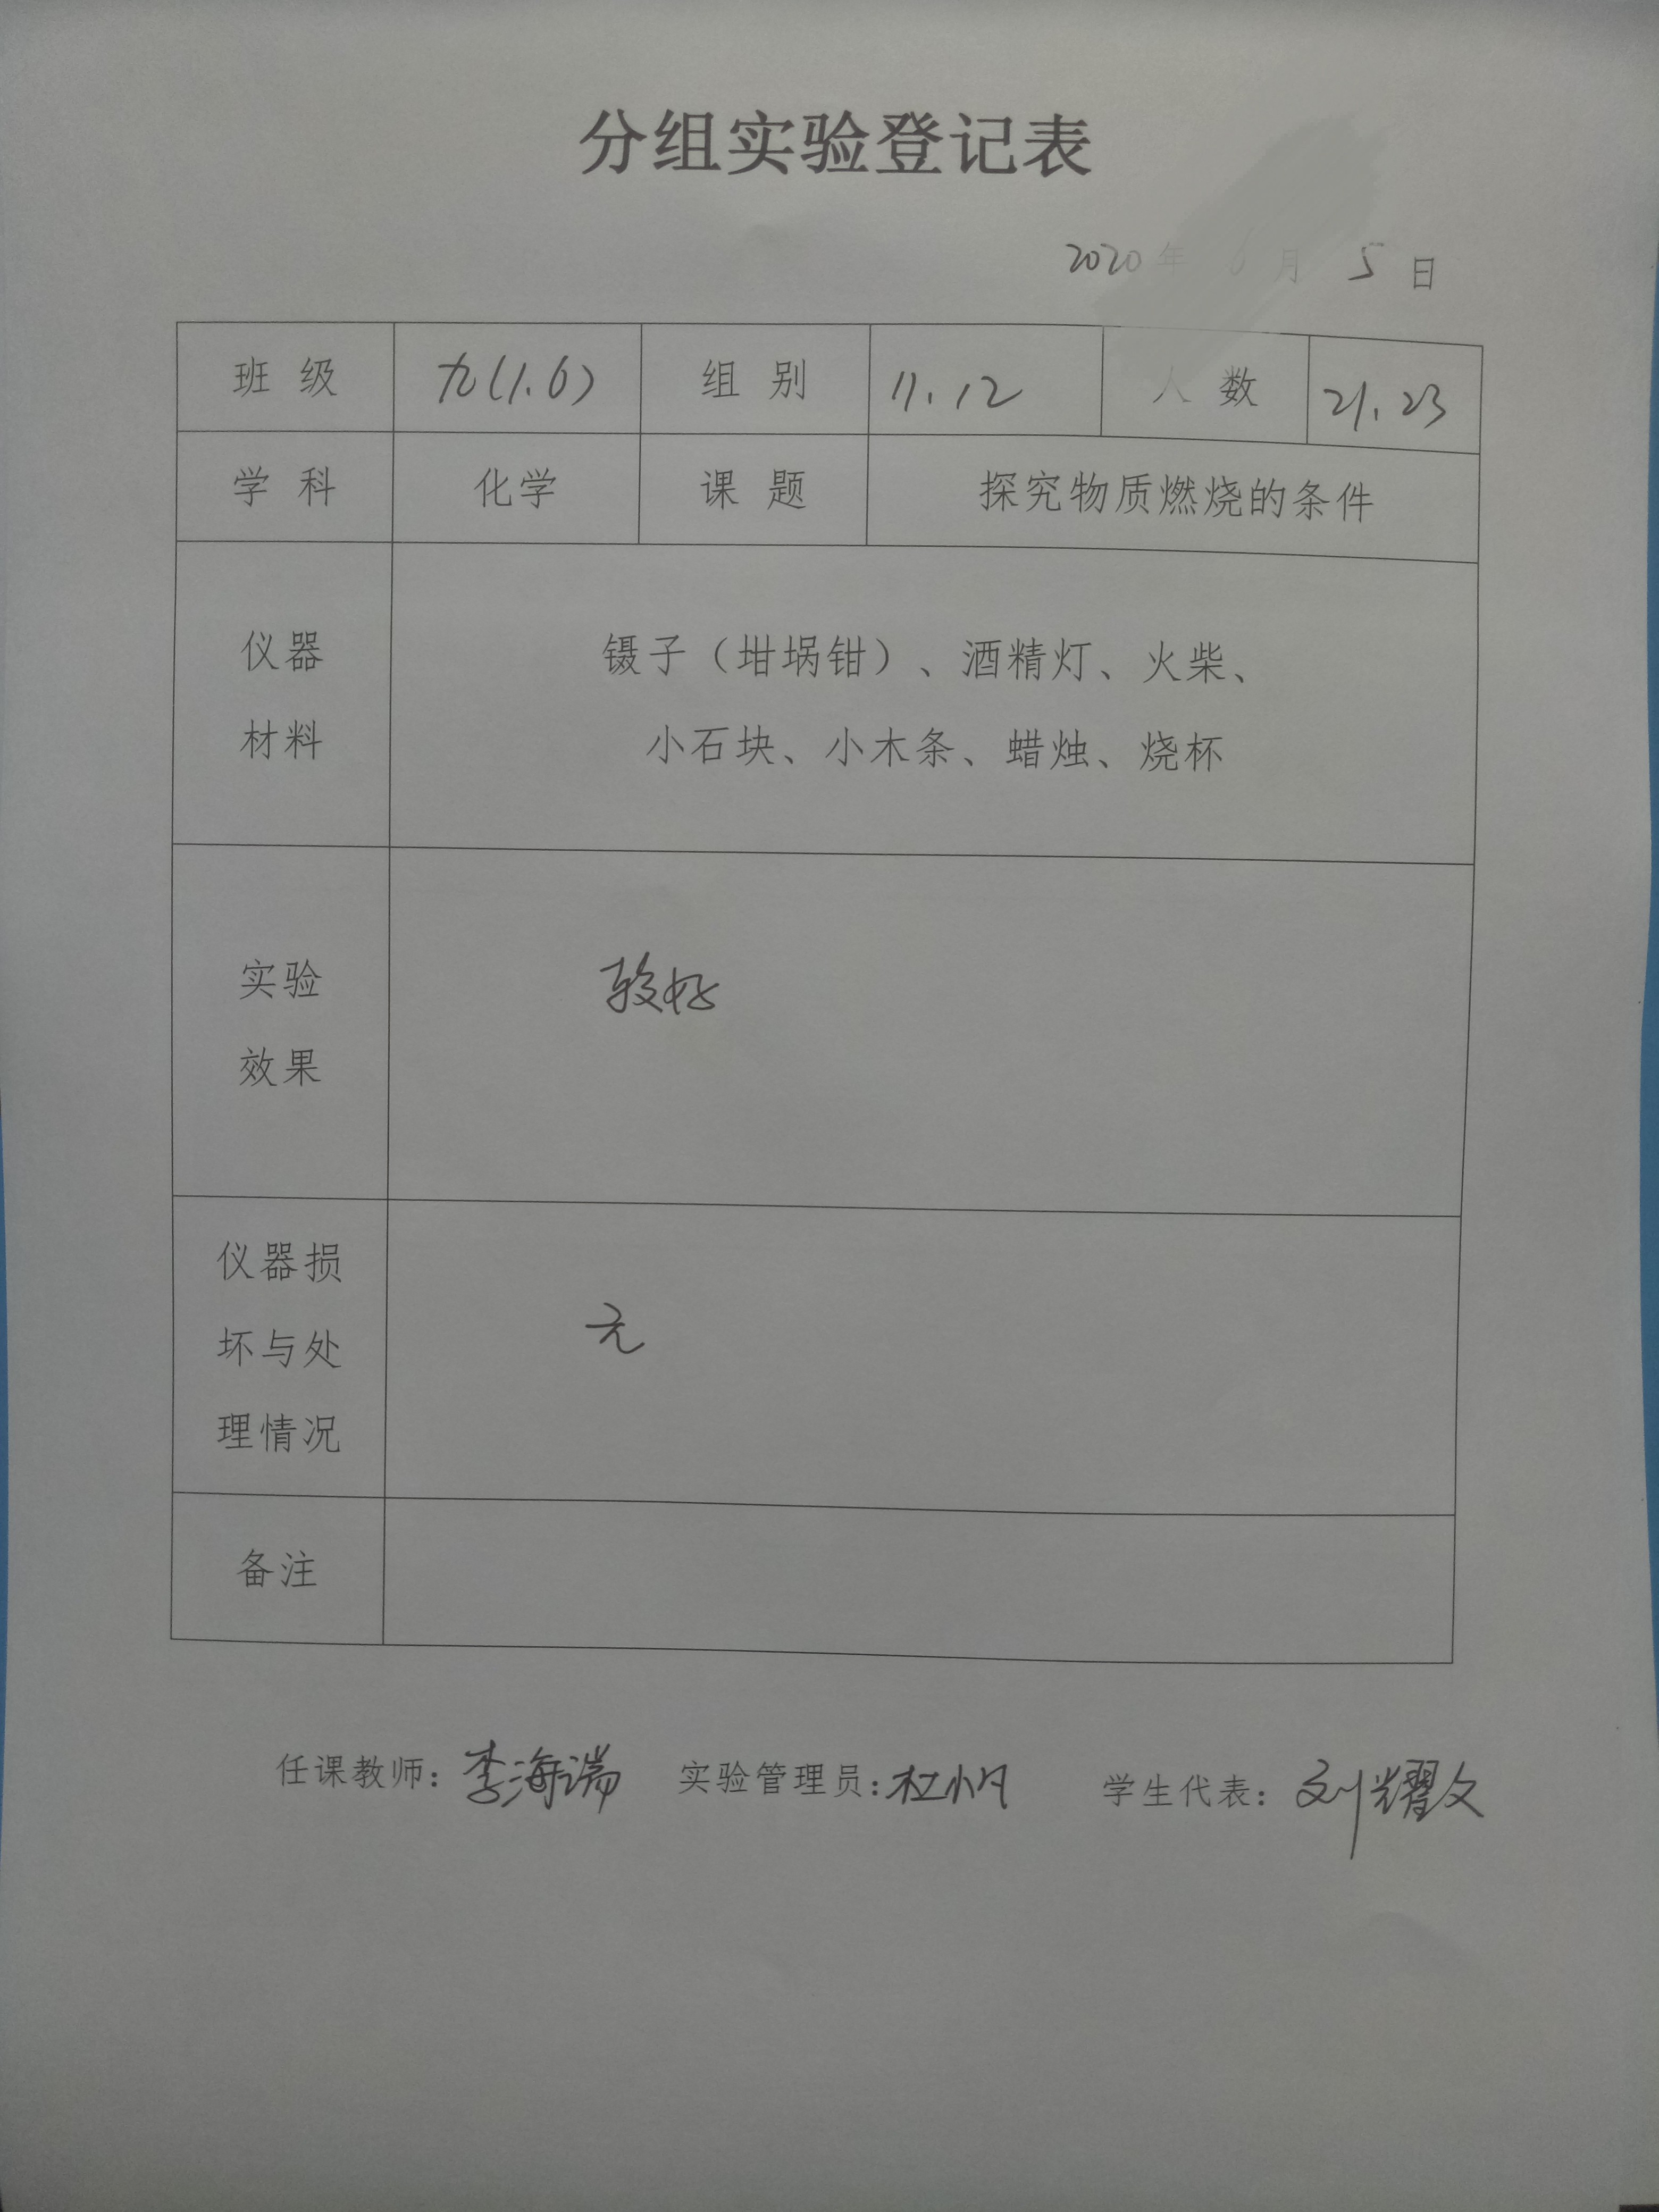 分组实验登记表
2020年 6月 5日
班 级 九(1.6) 组 别 11.12 人 数 21.23
学 科 化学 课 题 探究物质燃烧的条件
仪器
材料
镊子（坩埚钳）、酒精灯、火柴、
小石块、小木条、蜡烛、烧杯
实验
效果
较好
仪器损
坏与处
理情况
无
备注
任课教师：李海瑞 实验管理员：杜小凡 学生代表：刘耀文